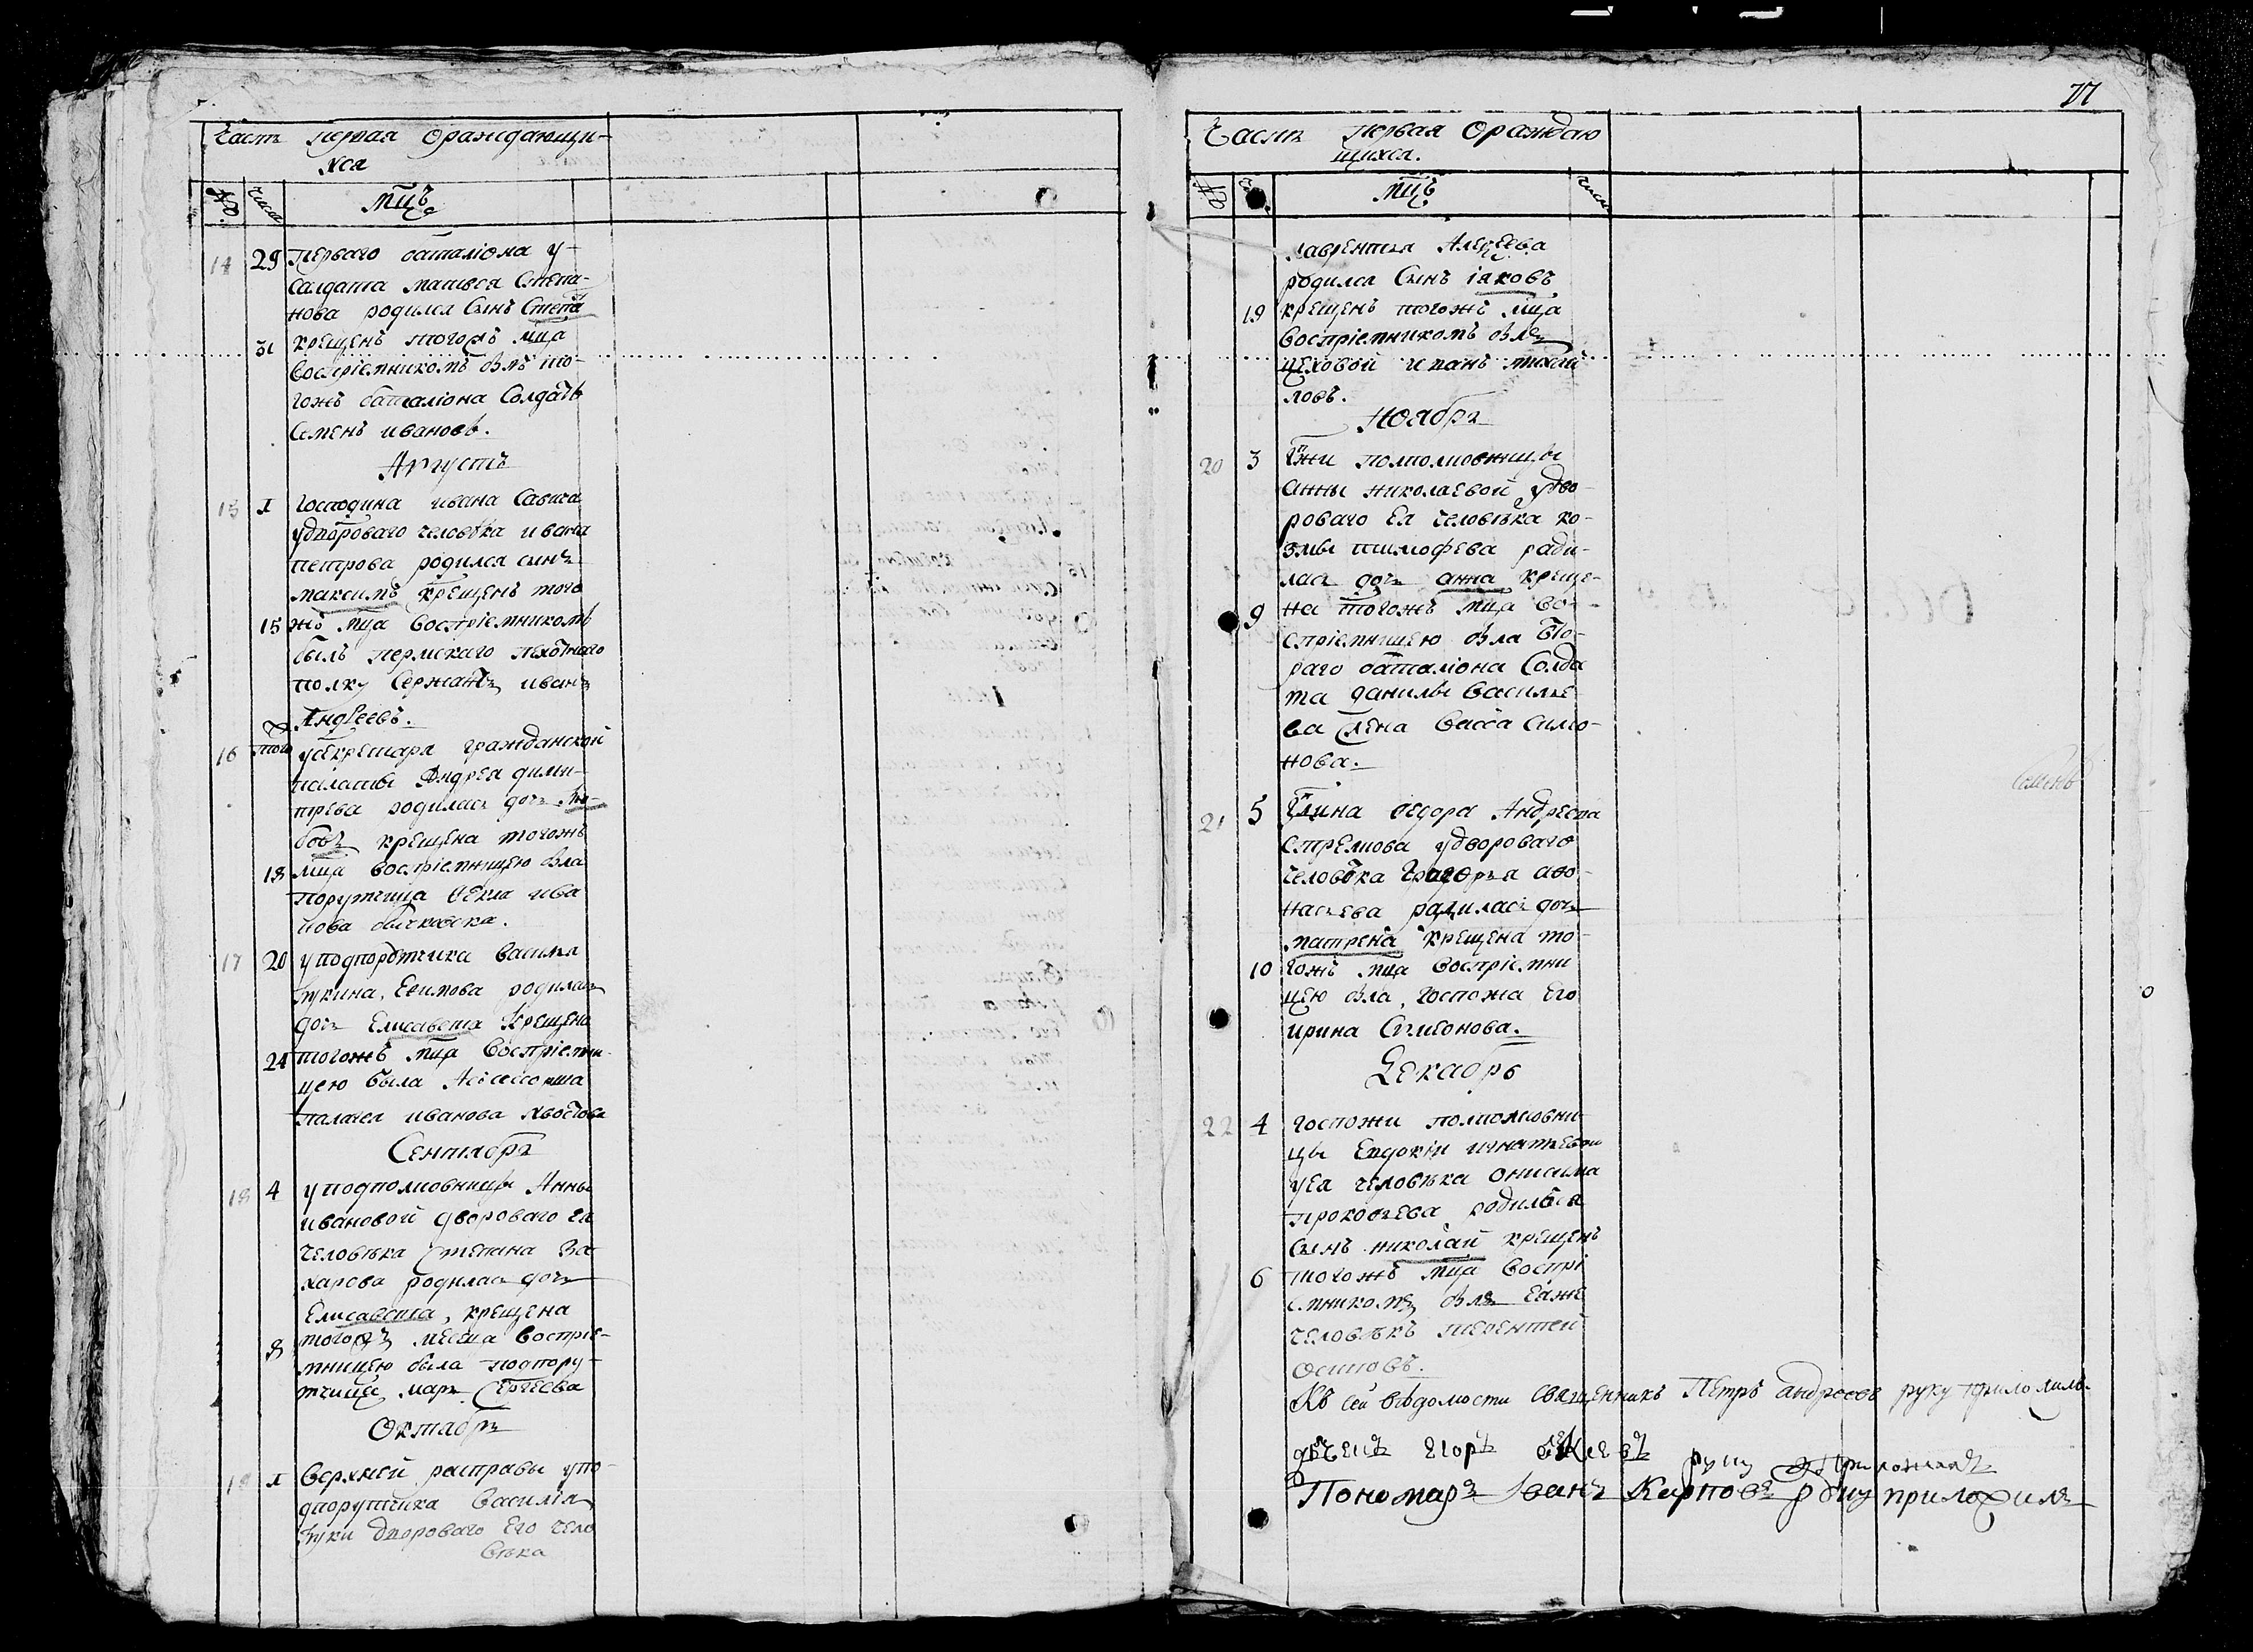 Часть первая о раждающи-
хся
№ число мц҃ъ
14 29 Перваго баталiона у
салдата матвея Степа-
нова родился Сынъ Степа
31 крещенъ тогожъ мц҃а
восприемникомъ былъ то-
гожъ баталiона Солдатъ
Семенъ ивановъ.
Августъ
15 1 Господина ивана Савича
удвороваго человека ивана
петрова родился сынъ
максимъ крещенъ того
15 жъ мц҃а восприемникомъ
былъ пермскаго пехотнаго
полку Сержантъ иванъ
Андреевъ.
16 того усекретаря гражданской
палаты Андрея дими-
трева родилась дочь Лю-
бовь крещена тогожъ
18 мц҃а восприемницею была
порутчица Фекла ива
нова
17 20 у подпорутчика Василья
Ефимова родилась
дочь Елисавета Крещена
24 тогожъ мц҃а восприемни-
цею была Ассессорша
иванова Хвостова
Сентябрь
18 4 у подполковницы Анны
ивановой двороваго ея
человѣка Степана За
харова родилась дочь
Елисавета, крещена
8 тогожъ месеца восприе-
мницею была подпору-
тчица марья Сергеева
Октябрь
19 1 Верхней расправы упо-
дпорутчика Василья
двороваго Его чело
вѣка
77
Часть первая о раждаю
щихся.
№ мц҃ъ число
Лаврентья Алексеева
родился Сынъ iаковъ
19 крещенъ тогожъ мц҃а
восприемникомъ былъ
цеховой иванъ михай
ловъ.
Ноябрь
20 3 Гжи полполковницы
анны николаевой удво-
роваго Ея человѣка ко-
змы тимофева роди-
лась дочь анна креще-
9 на тогожъ мц҃а во-
сприемницею была вто-
раго баталiона Солда
та данилы василье-
ва жена васса симо-
нова.
21 5 Гдина Федора Андреева
стрелкова удвороваго
человека Григорья афо-
насьева родилась дочь
матрена крещена то-
10 гожъ мц҃а восприемни
цею была, госпожа Его
ирина Симеонова.
Декабрь
22 4 госпожи полполковни-
цы Евдокiи игнатьевой
уея человѣка онисима
прокофьева родился
сынъ николай крещенъ
6 тогожъ мц҃а воспри
емникомъ былъ Еяже
человѣкъ терентей
осиповъ.
Къ сей вѣдомости священникъ Петръ андреевъ руку приложилъ.
дьячекъ Егоръ руку приложилъ
Пономарь Иванъ Карповъ руку приложилъ